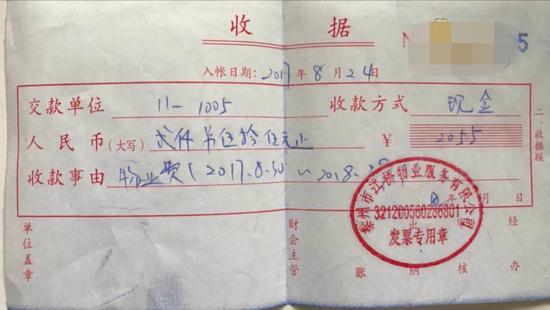 收 据
N 5
入帐日期：2017年8月24日
交款单位 11-1005 收款方式 现金
人民币（大写） 贰仟零伍拾伍元正 ￥ 2055
收款事由 物业费（2017.8.30～2018.8.
年 月 日
二、收据联
单位盖章 财会主管 记账 出纳 审核 经办
泰州市 物业服务有限公司
321200560296801
发票专用章